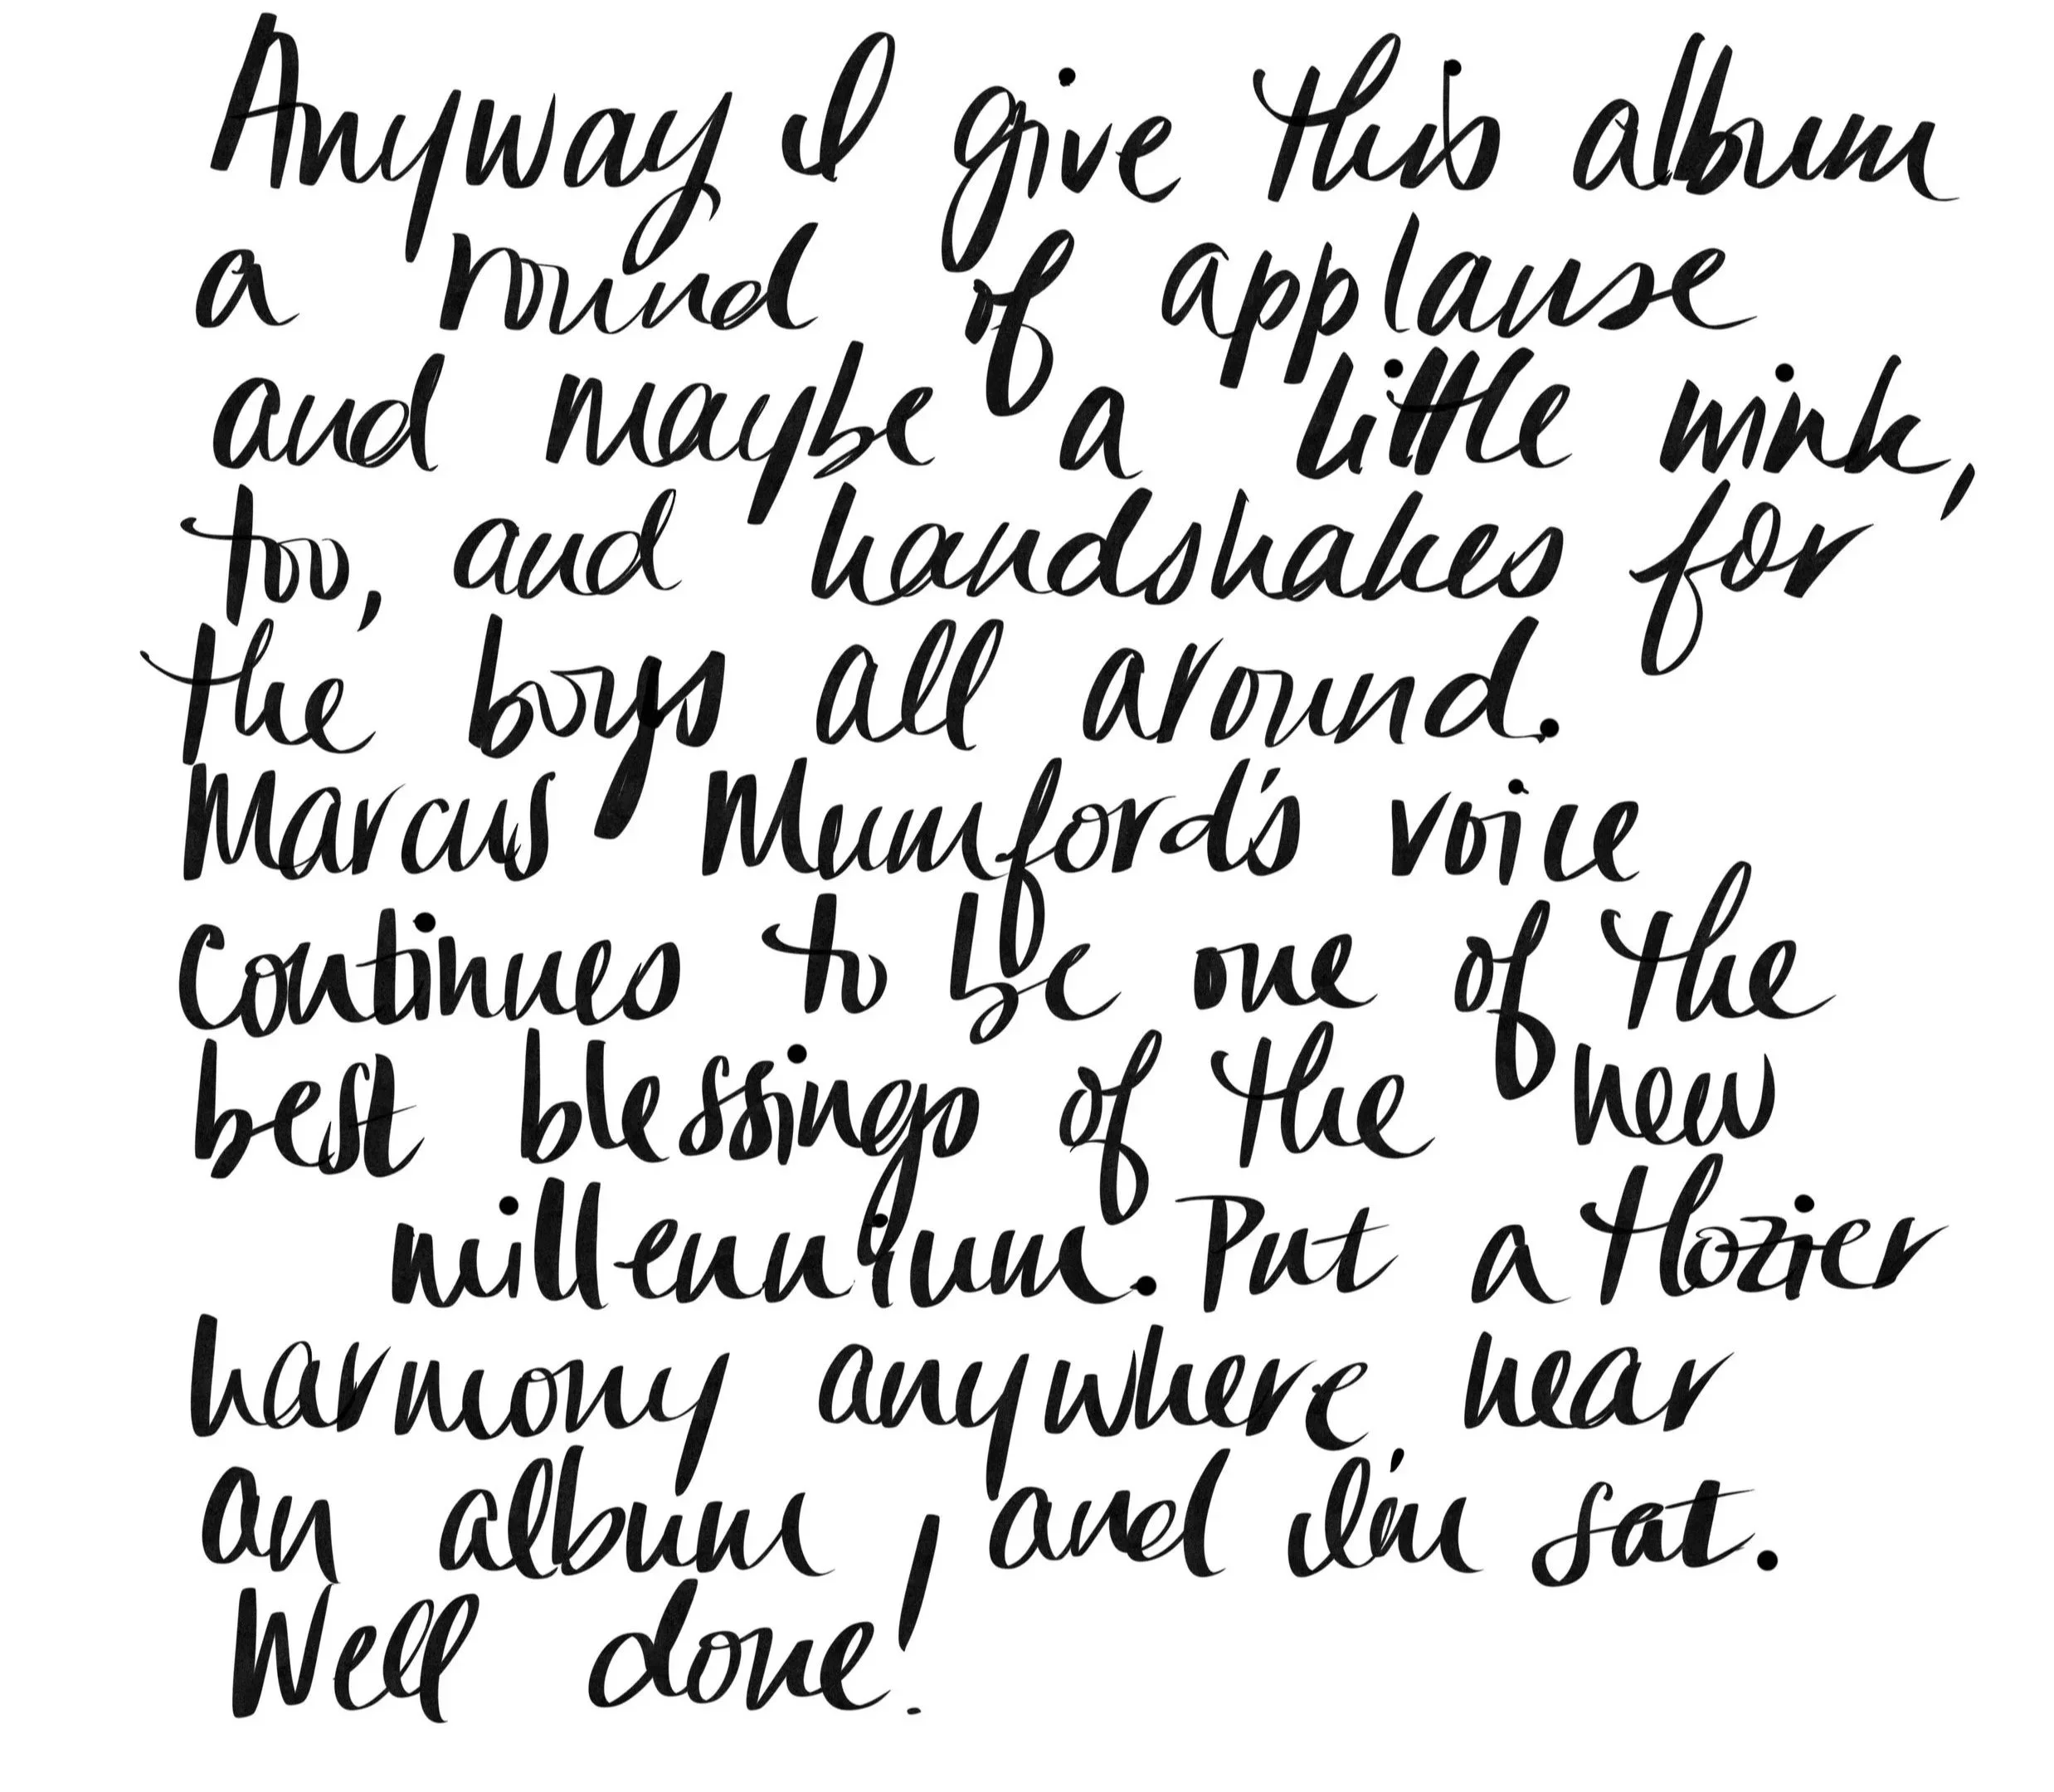 Anyway I give this album
a round of applause
and maybe a little wink,
too, and handshakes for
the boys all around.
Marcus Mumford's voice
continues to be one of the
best blessings of the new
millennium. Put a Hozier
harmony anywhere near
an album, and I'm sat.
Well done!